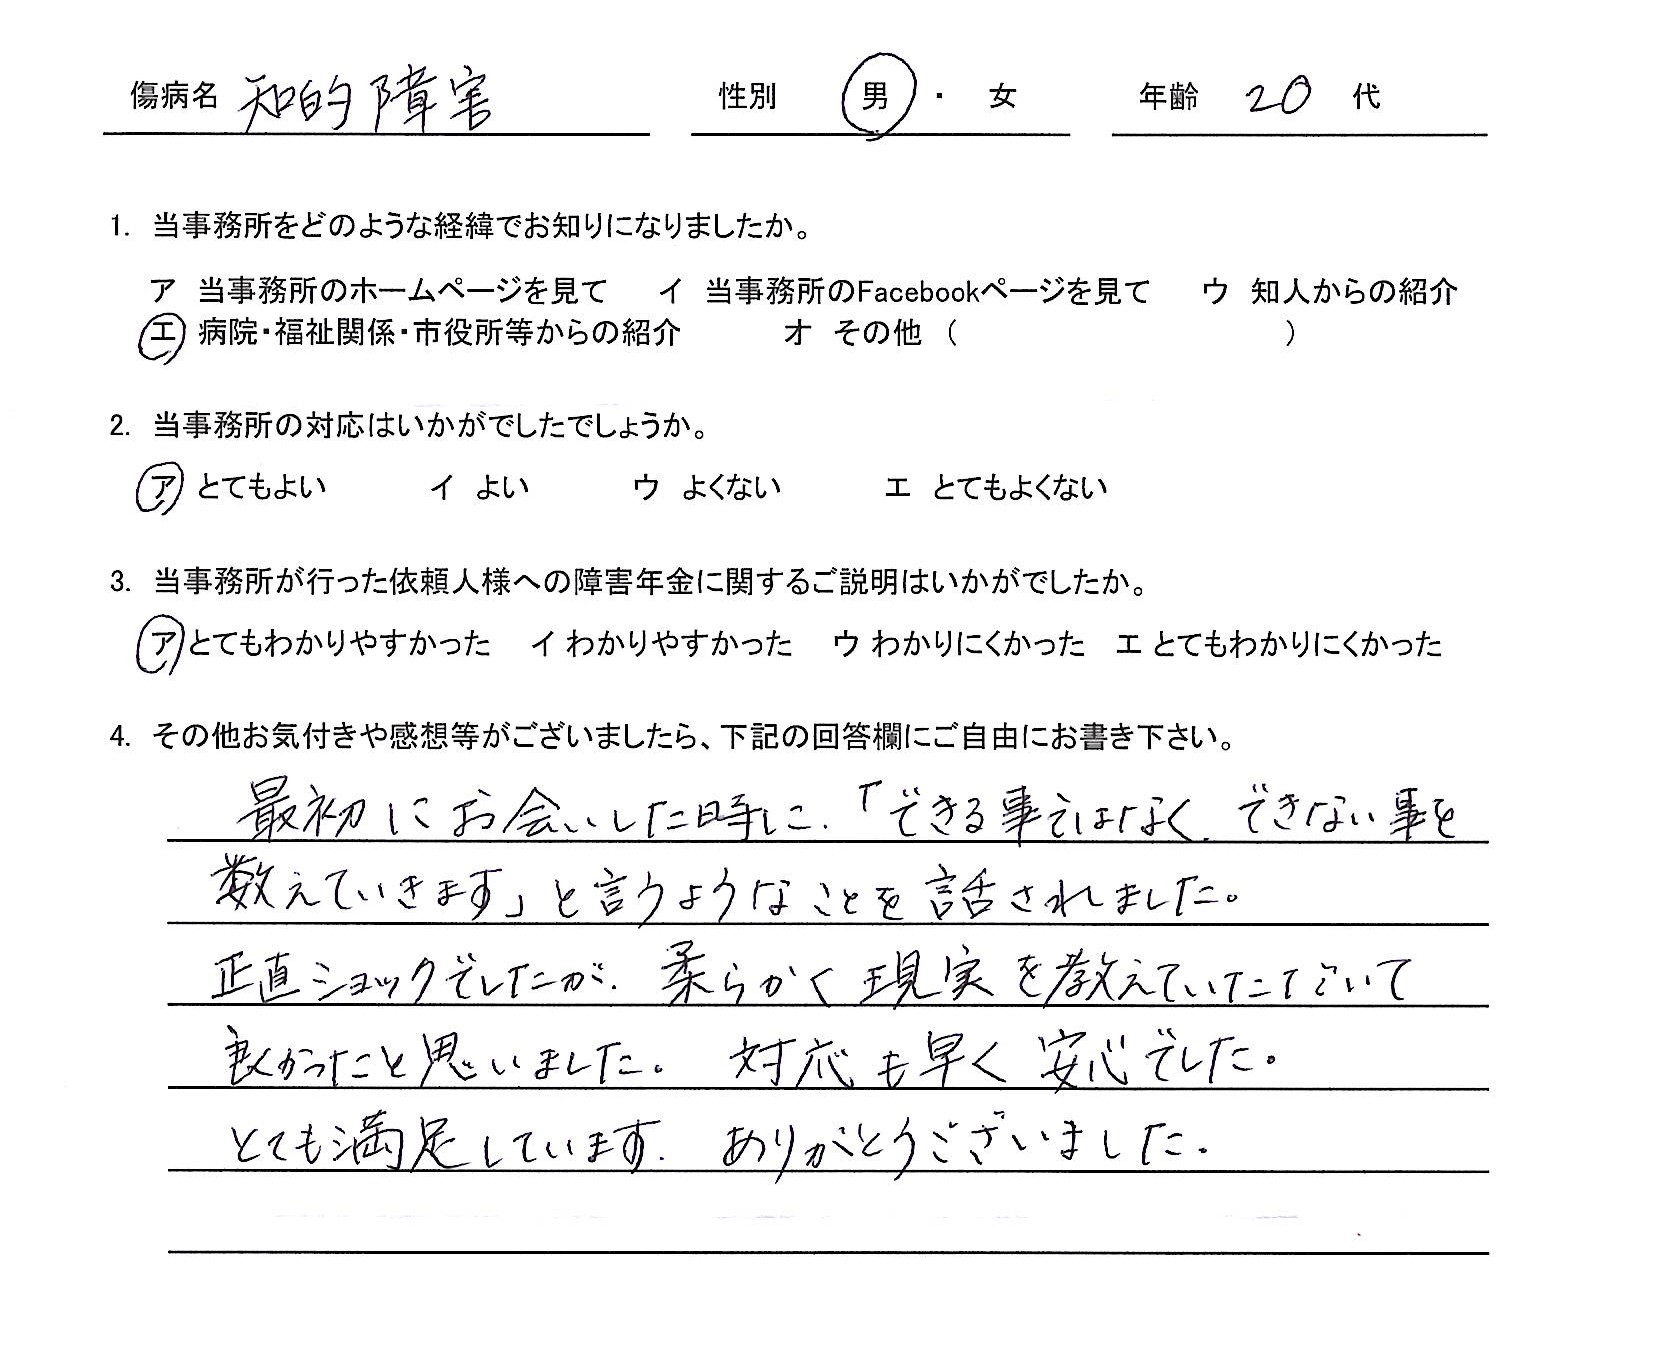 傷病名 知的障害 性別 男 ・ 女 年齢 20 代
1. 当事務所をどのような経緯でお知りになりましたか。
ア 当事務所のホームページを見て イ 当事務所のFacebookページを見て ウ 知人からの紹介
エ 病院・福祉関係・市役所等からの紹介 オ その他 ( )
2. 当事務所の対応はいかがでしたでしょうか。
ア とてもよい イ よい ウ よくない エ とてもよくない
3. 当事務所が行った依頼人様への障害年金に関するご説明はいかがでしたか。
ア とてもわかりやすかった イ わかりやすかった ウ わかりにくかった エ とてもわかりにくかった
4. その他お気付きや感想等がございましたら、下記の回答欄にご自由にお書き下さい。
最初にお会いした時に、「できる事ではなく、できない事を
数えていきます」と言うようなことを話されました。
正直ショックでしたが、柔らかく現実を教えていただいて
良かったと思いました。対応も早く安心でした。
とても満足しています。ありがとうございました。